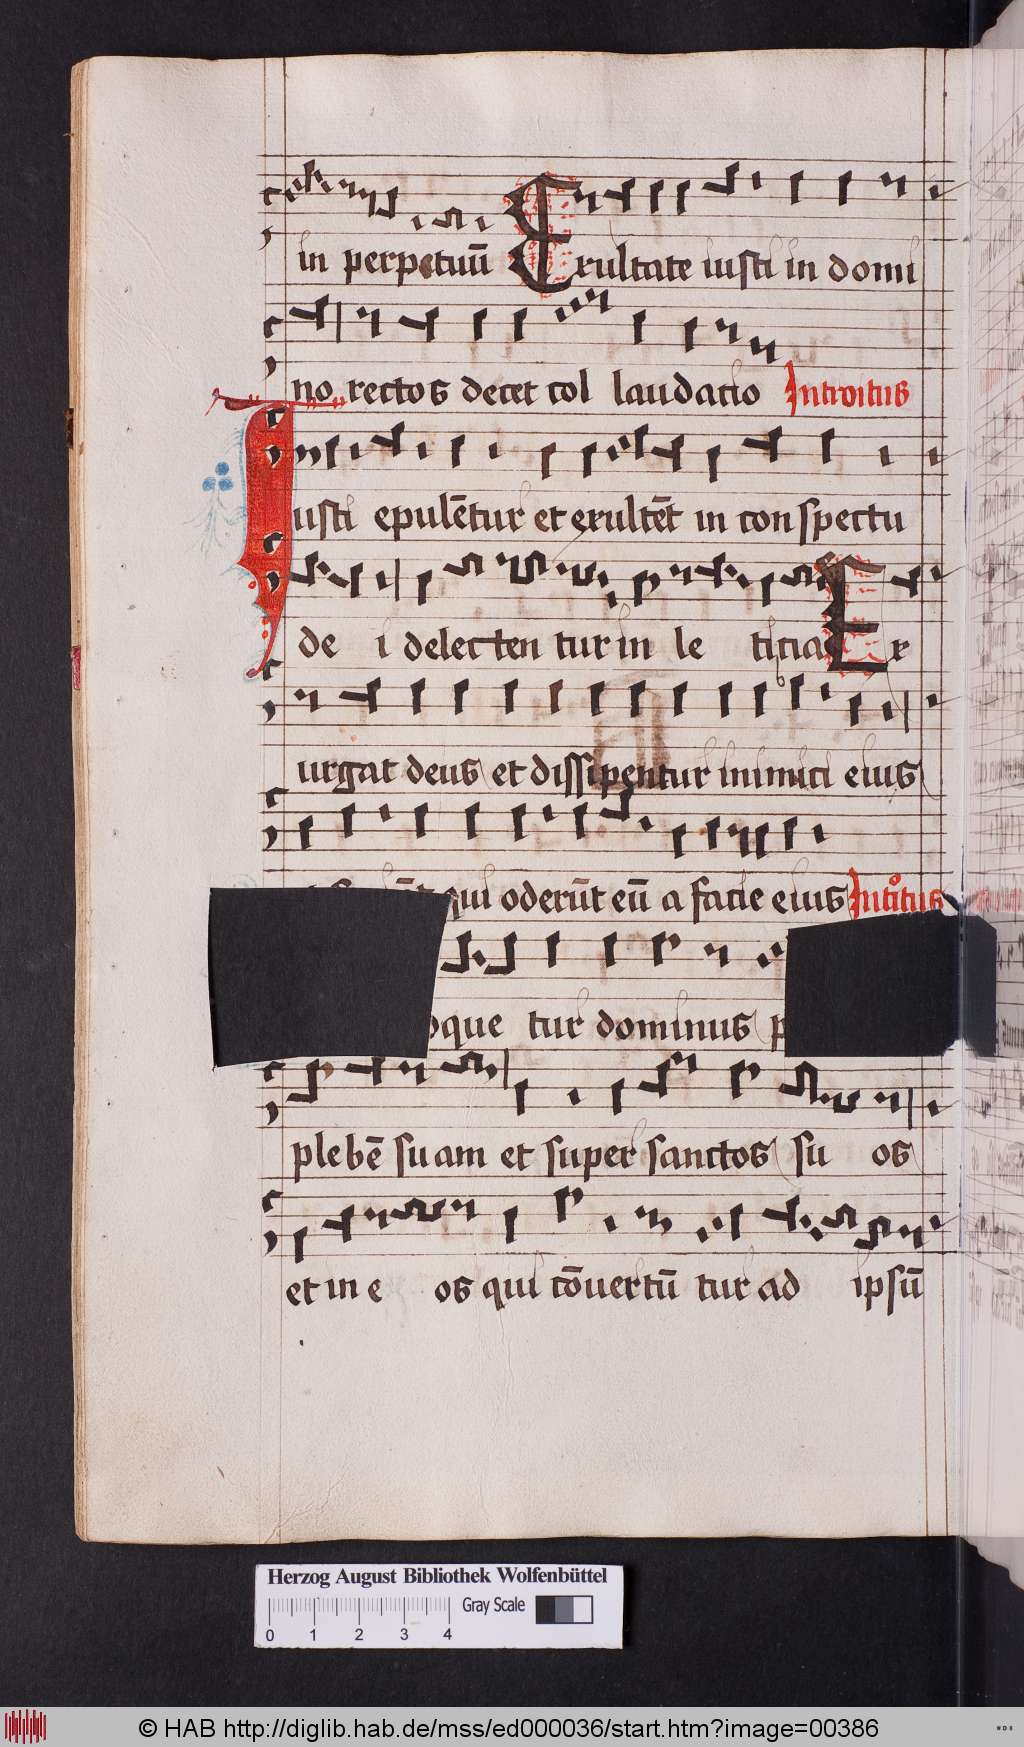 in perpetuū Exultate iusti in domi
no rectos decet col laudatio Introitus
Iusti epulētur et exultēt in conspectu
de i delecten tur in le ticia Ex
urgat deus et dissipentur inimici eius
qui oderūt eū a facie eius Intoitus
oque tur dominus p
plebē suam et super sanctos su os
et in e os qui cōuertū tur ad ipsū
Herzog August Bibliothek Wolfenbüttel
Gray Scale
0 1 2 3 4
© HAB http://diglib.hab.de/mss/ed000036/start.htm?image=00386